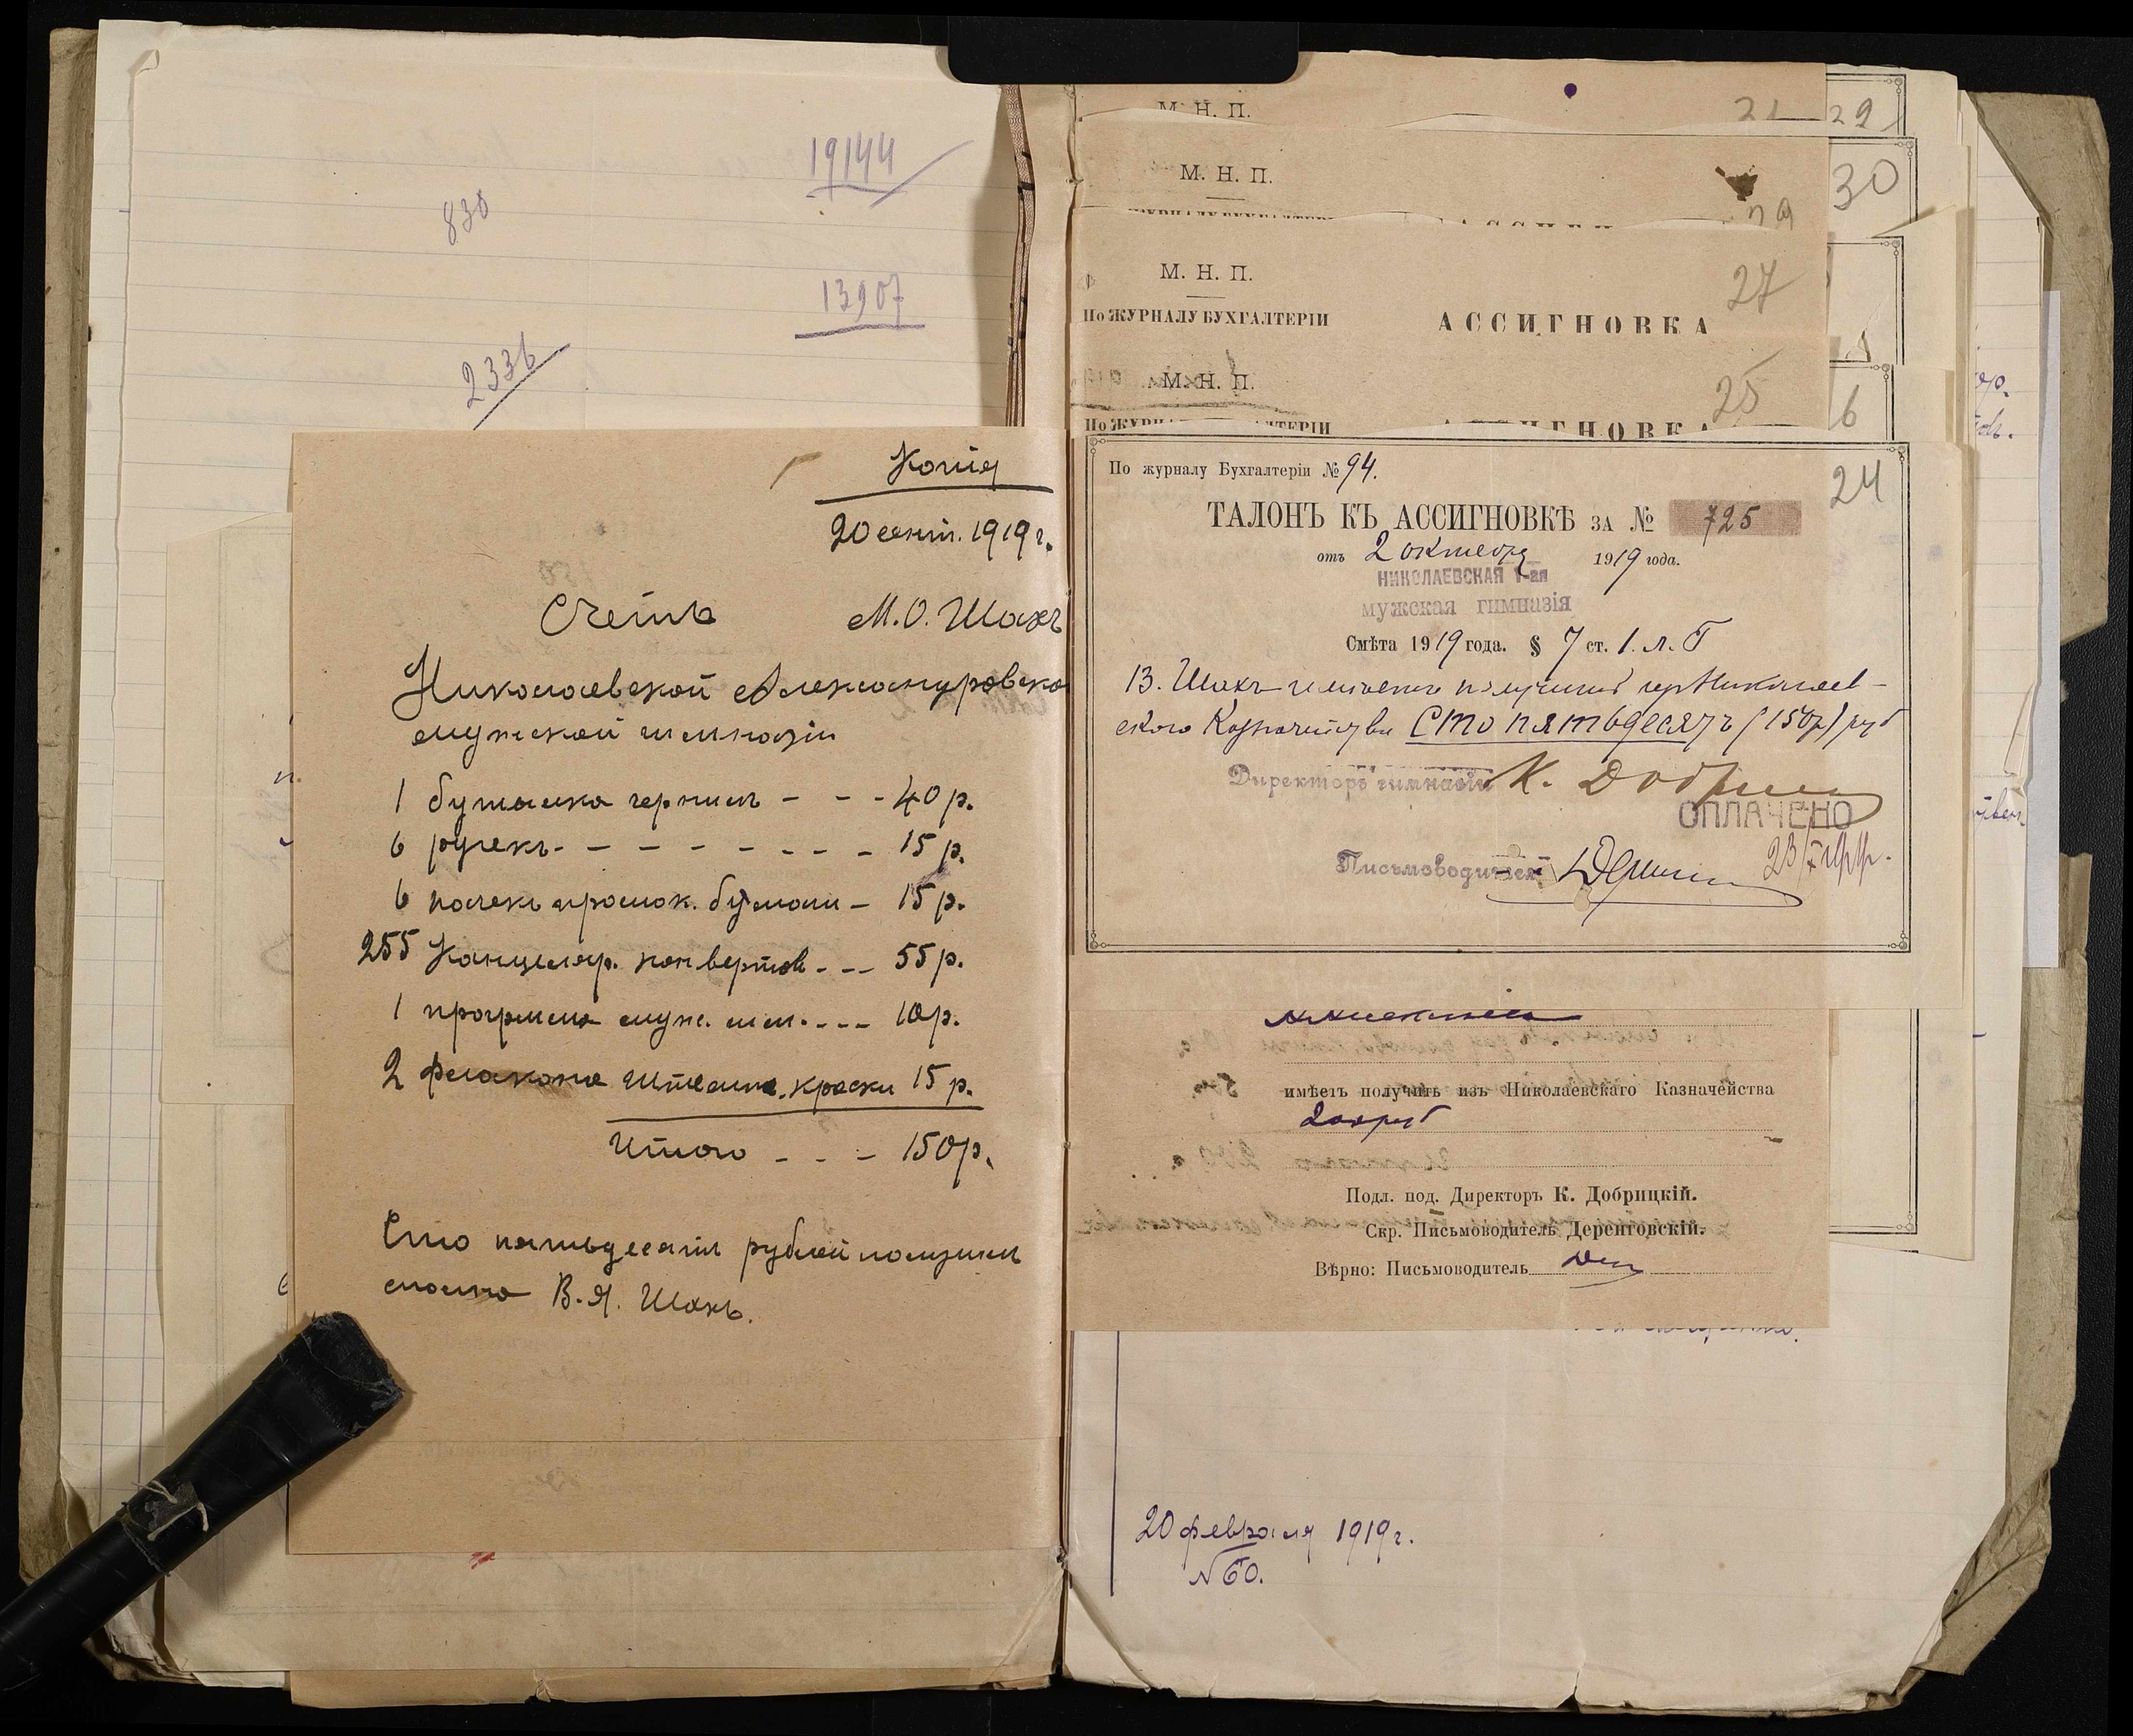 19144
830
13907
2336
Копія
20 сент. 1919 г.
Счетъ М.О. Шахъ
Николаевской Александровско
мужской гимназіи
1 бутылка чернилъ - - - 40 р.
6 ручекъ - - - - - - - - 15 р.
6 пачекъ промок. бумаги - 15 р.
255 Канцеляр. конвертов - - - 55 р.
1 программа мужс. гим. - - - 10 р.
2 флакона штемп. краски 15 р.
Итого - - - 150 р.
Сто пятьдесятъ рублей получилъ
сполна В.Я. Шахъ.
М. Н. П.
29
М. Н. П.
30
М. Н. П.
27
По ЖУРНАЛУ БУХГАЛТЕРІИ АССИГНОВКА
М. Н. П.
25
6
По журналу Бухгалтеріи № 94.
24
ТАЛОНЪ КЪ АССИГНОВКѢ ЗА № 725
отъ 2 октября 1919 года.
НИКОЛАЕВСКАЯ 1-ая
мужская гимназія
Смѣта 1919 года. § 7 ст. 1. л. Г
В. Шахъ имѣетъ получить изъ Николаев-
скаго Казначейства Сто пятьдесятъ (150р) руб
Директоръ гимназіи К. Добриц
ОПЛАЧЕНО
Письмоводитель
имѣетъ получить изъ Николаевскаго Казначейства
200 руб
Подл. под. Директоръ К. Добрицкій.
Скр. Письмоводитель Деренговскій.
Вѣрно: Письмоводитель
20 февраля 1919 г.
№ 60.